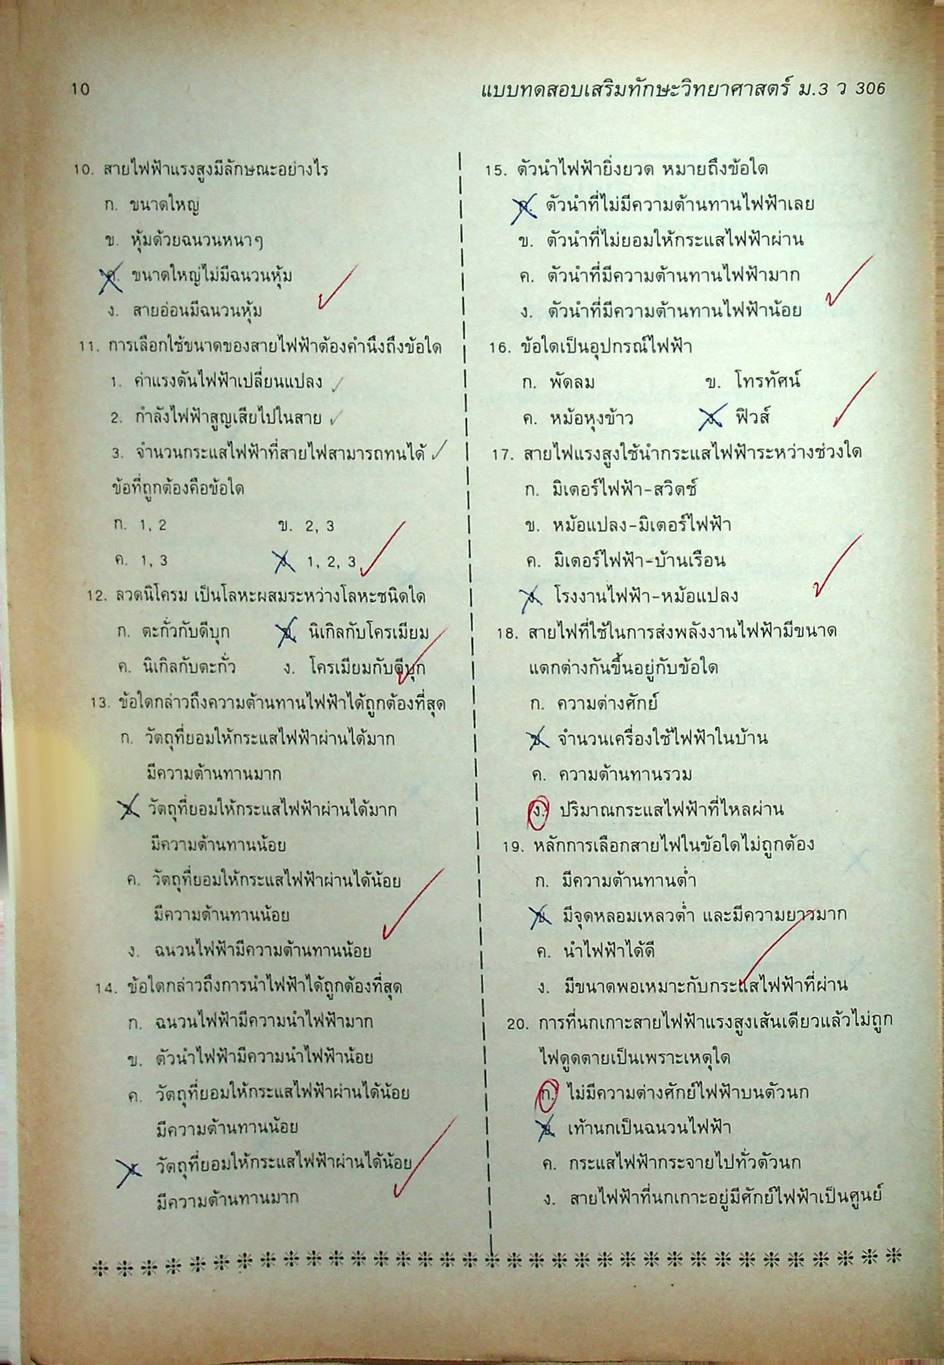 10
แบบทดสอบเสริมทักษะวิทยาศาสตร์ ม.3 ว 306
10. สายไฟฟ้าแรงสูงมีลักษณะอย่างไร
ก. ขนาดใหญ่
ข. หุ้มด้วยฉนวนหนาๆ
ค. ขนาดใหญ่ไม่มีฉนวนหุ้ม
ง. สายอ่อนมีฉนวนหุ้ม
11. การเลือกใช้ขนาดของสายไฟฟ้าต้องคำนึงถึงข้อใด
1. ค่าแรงดันไฟฟ้าเปลี่ยนแปลง
2. กำลังไฟฟ้าสูญเสียไปในสาย
3. จำนวนกระแสไฟฟ้าที่สายไฟสามารถทนได้
ข้อที่ถูกต้องคือข้อใด
ก. 1, 2 ข. 2, 3
ค. 1, 3 ง. 1, 2, 3
12. ลวดนิโครม เป็นโลหะผสมระหว่างโลหะชนิดใด
ก. ตะกั่วกับดีบุก ข. นิเกิลกับโครเมียม
ค. นิเกิลกับตะกั่ว ง. โครเมียมกับดีบุก
13. ข้อใดกล่าวถึงความต้านทานไฟฟ้าได้ถูกต้องที่สุด
ก. วัตถุที่ยอมให้กระแสไฟฟ้าผ่านได้มาก
มีความต้านทานมาก
ข. วัตถุที่ยอมให้กระแสไฟฟ้าผ่านได้มาก
มีความต้านทานน้อย
ค. วัตถุที่ยอมให้กระแสไฟฟ้าผ่านได้น้อย
มีความต้านทานน้อย
ง. ฉนวนไฟฟ้ามีความต้านทานน้อย
14. ข้อใดกล่าวถึงการนำไฟฟ้าได้ถูกต้องที่สุด
ก. ฉนวนไฟฟ้ามีความนำไฟฟ้ามาก
ข. ตัวนำไฟฟ้ามีความนำไฟฟ้าน้อย
ค. วัตถุที่ยอมให้กระแสไฟฟ้าผ่านได้น้อย
มีความต้านทานน้อย
ง. วัตถุที่ยอมให้กระแสไฟฟ้าผ่านได้น้อย
มีความต้านทานมาก
15. ตัวนำไฟฟ้ายิ่งยวด หมายถึงข้อใด
ก. ตัวนำที่ไม่มีความต้านทานไฟฟ้าเลย
ข. ตัวนำที่ไม่ยอมให้กระแสไฟฟ้าผ่าน
ค. ตัวนำที่มีความต้านทานไฟฟ้ามาก
ง. ตัวนำที่มีความต้านทานไฟฟ้าน้อย
16. ข้อใดเป็นอุปกรณ์ไฟฟ้า
ก. พัดลม ข. โทรทัศน์
ค. หม้อหุงข้าว ง. ฟิวส์
17. สายไฟแรงสูงใช้นำกระแสไฟฟ้าระหว่างช่วงใด
ก. มิเตอร์ไฟฟ้า-สวิตช์
ข. หม้อแปลง-มิเตอร์ไฟฟ้า
ค. มิเตอร์ไฟฟ้า-บ้านเรือน
ง. โรงงานไฟฟ้า-หม้อแปลง
18. สายไฟที่ใช้ในการส่งพลังงานไฟฟ้ามีขนาด
แตกต่างกันขึ้นอยู่กับข้อใด
ก. ความต่างศักย์
ข. จำนวนเครื่องใช้ไฟฟ้าในบ้าน
ค. ความต้านทานรวม
ง. ปริมาณกระแสไฟฟ้าที่ไหลผ่าน
19. หลักการเลือกสายไฟในข้อใดไม่ถูกต้อง
ก. มีความต้านทานต่ำ
ข. มีจุดหลอมเหลวต่ำ และมีความยาวมาก
ค. นำไฟฟ้าได้ดี
ง. มีขนาดพอเหมาะกับกระแสไฟฟ้าที่ผ่าน
20. การที่นกเกาะสายไฟฟ้าแรงสูงเส้นเดียวแล้วไม่ถูก
ไฟดูดตายเป็นเพราะเหตุใด
ก. ไม่มีความต่างศักย์ไฟฟ้าบนตัวนก
ข. เท้านกเป็นฉนวนไฟฟ้า
ค. กระแสไฟฟ้ากระจายไปทั่วตัวนก
ง. สายไฟฟ้าที่นกเกาะอยู่มีศักย์ไฟฟ้าเป็นศูนย์